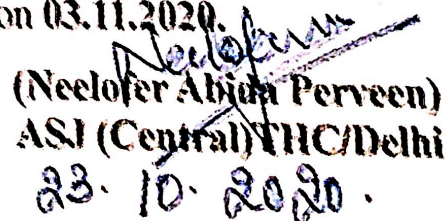 on 03.11.2020.
Neelofer
(Neelofer Abida Perveen)
ASJ (Central)THC/Delhi
23.10.2020.